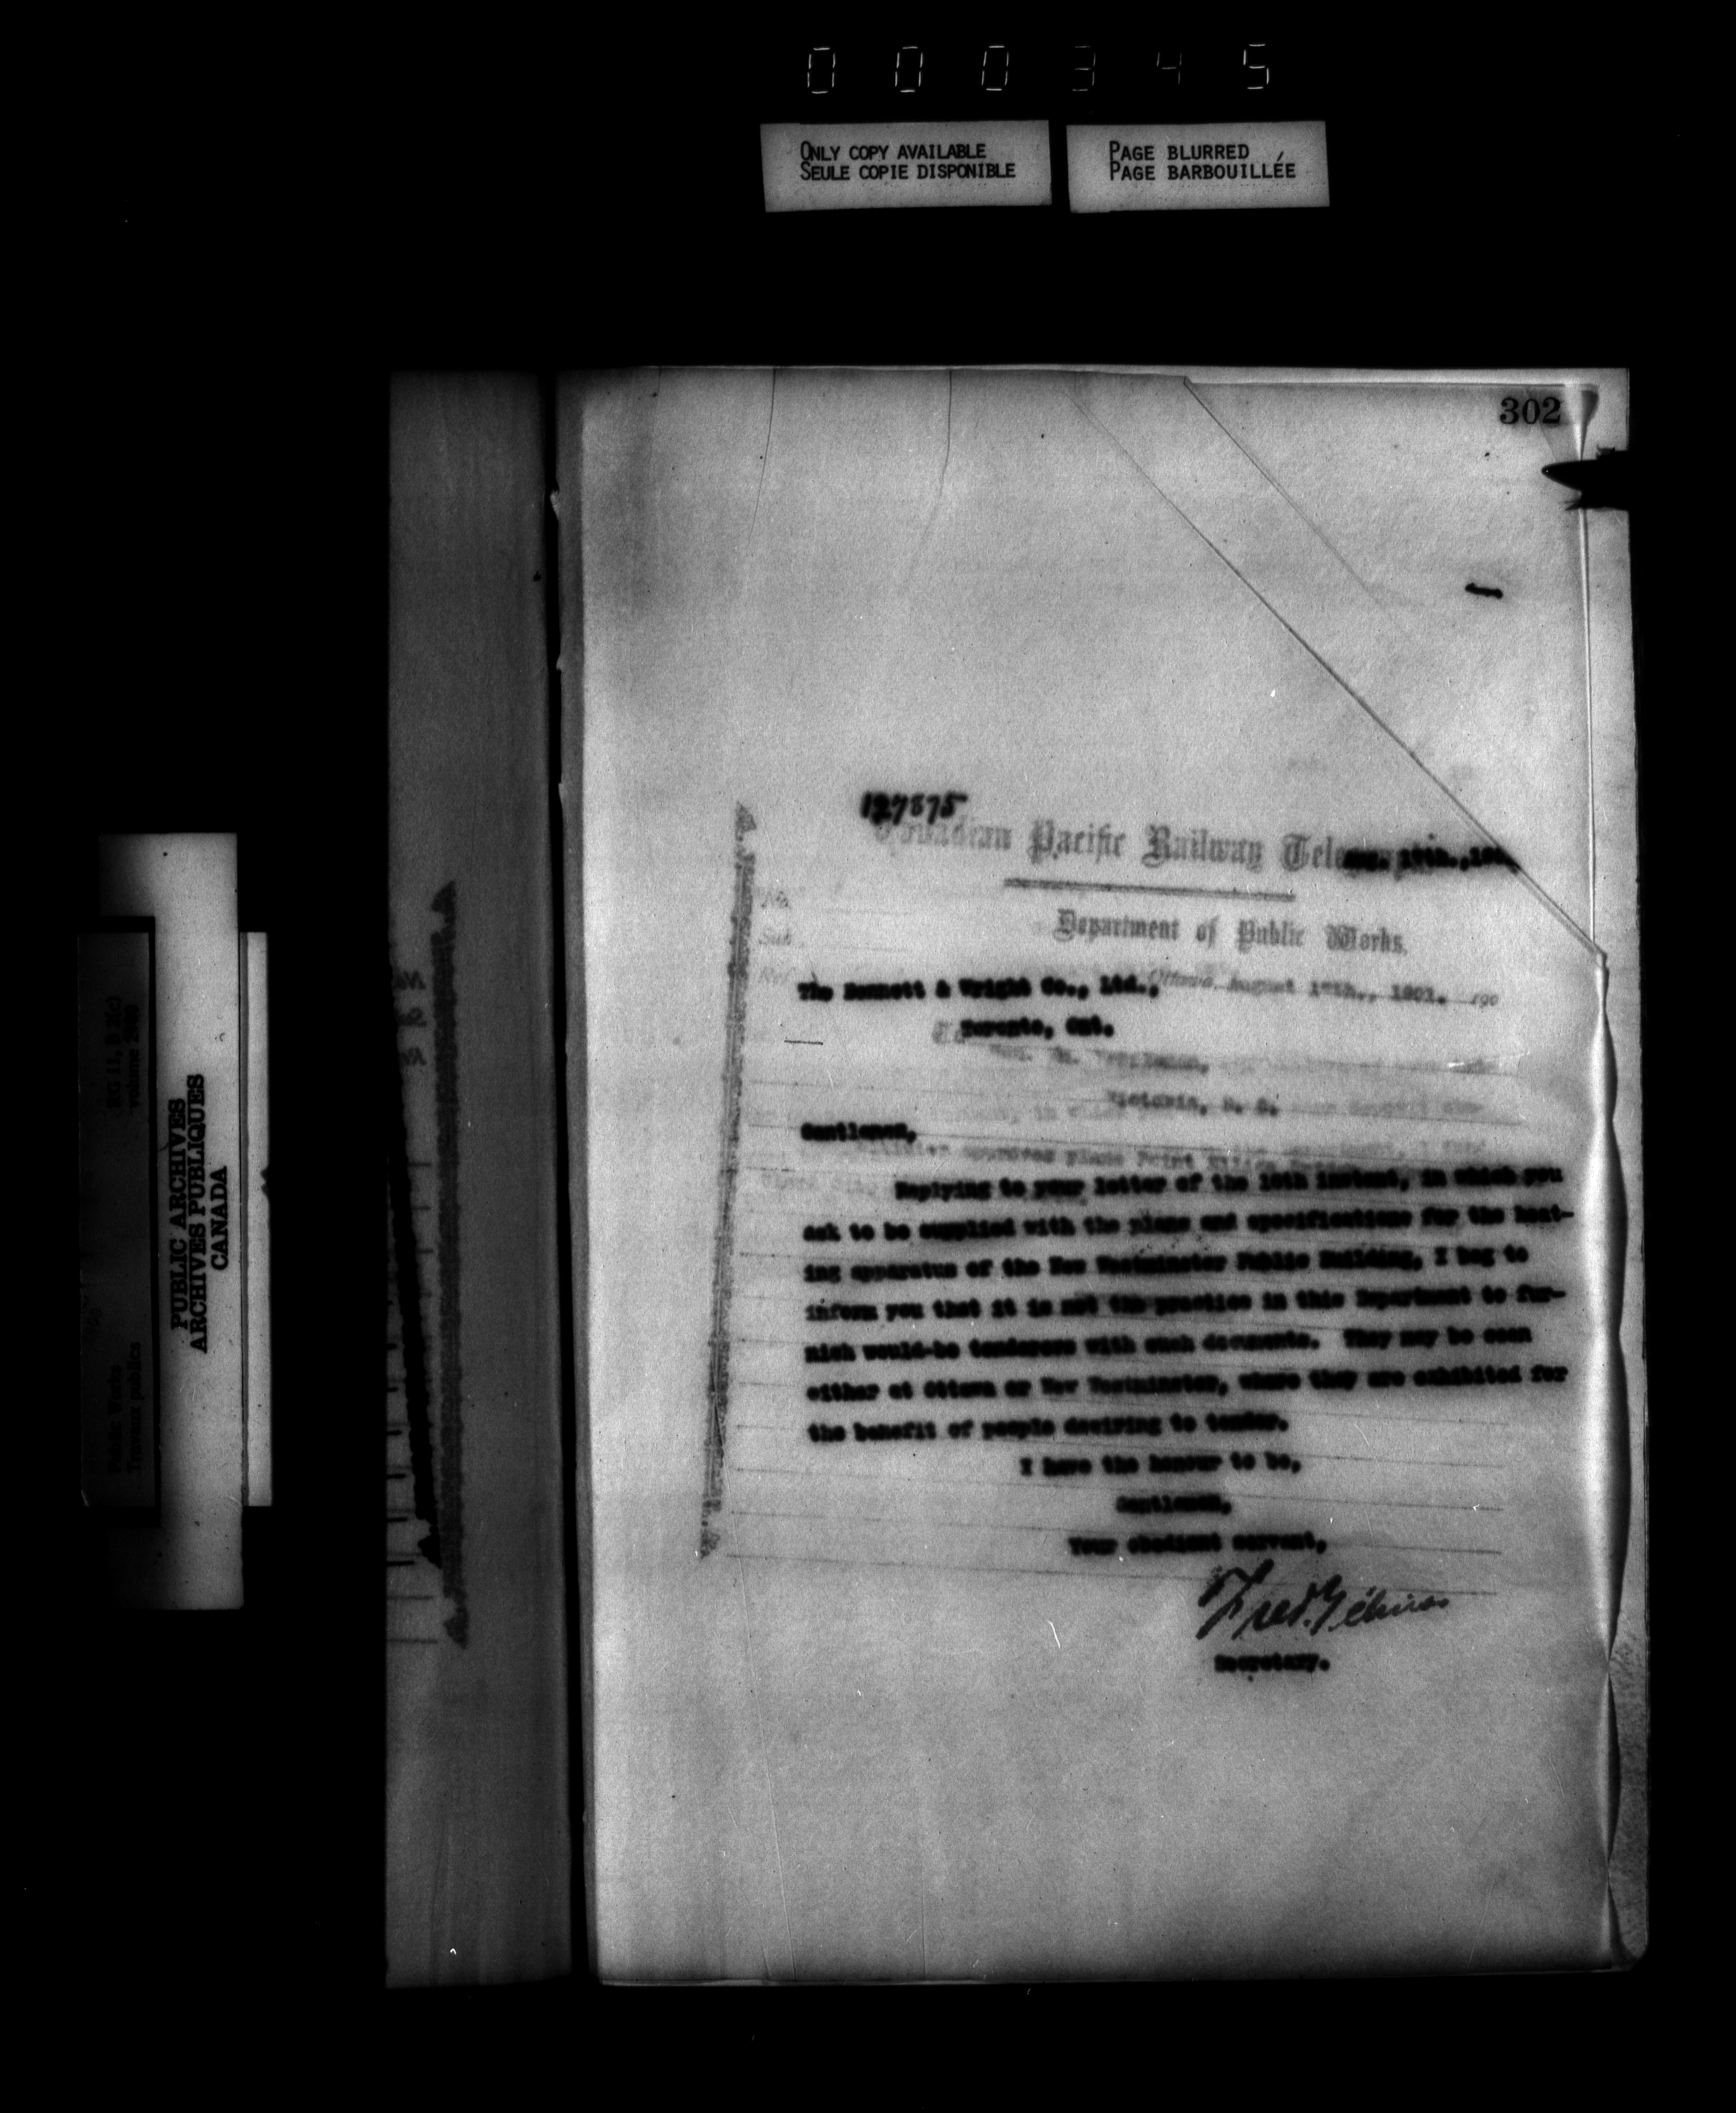 000345
ONLY COPY AVAILABLE
SEULE COPIE DISPONIBLE
PAGE BLURRED
PAGE BARBOUILLÉE
302
127875
Canadian Pacific Railway Telegraph
Aug. 17th.,
No.
Department of Public Works.
Sub
Ref
Ottawa, August 17th., 1901. 190
The Bennett & Wright Co., Ltd.,
Toronto, Ont.
To
Victoria, B. C.
Gentlemen,
approves plans Point
Replying to your letter of the 10th instant, in which you
ask to be supplied with the plans and specifications for the heat-
ing apparatus of the New Westminster Public Building, I beg to
inform you that it is not the practice in this Department to fur-
nish would-be tenderers with such documents. They may be seen
either at Ottawa or New Westminster, where they are exhibited for
the benefit of people desiring to tender.
I have the honour to be,
Gentlemen,
Your obedient servant,
Fred. Gélinas
Secretary.
PUBLIC ARCHIVES
ARCHIVES PUBLIQUES
CANADA
RG 11, B 2(c)
volume
Public Works
Travaux publics